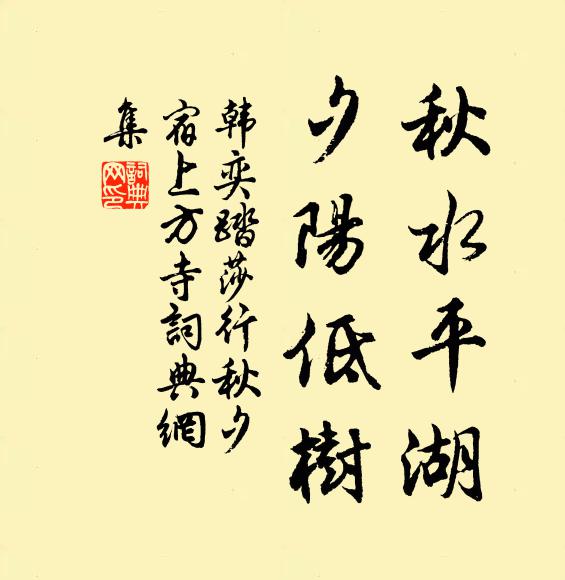 秋水平湖
夕陽低樹
韩奕踏莎行秋夕
宿上方寺詞典網
集
詞典
网印